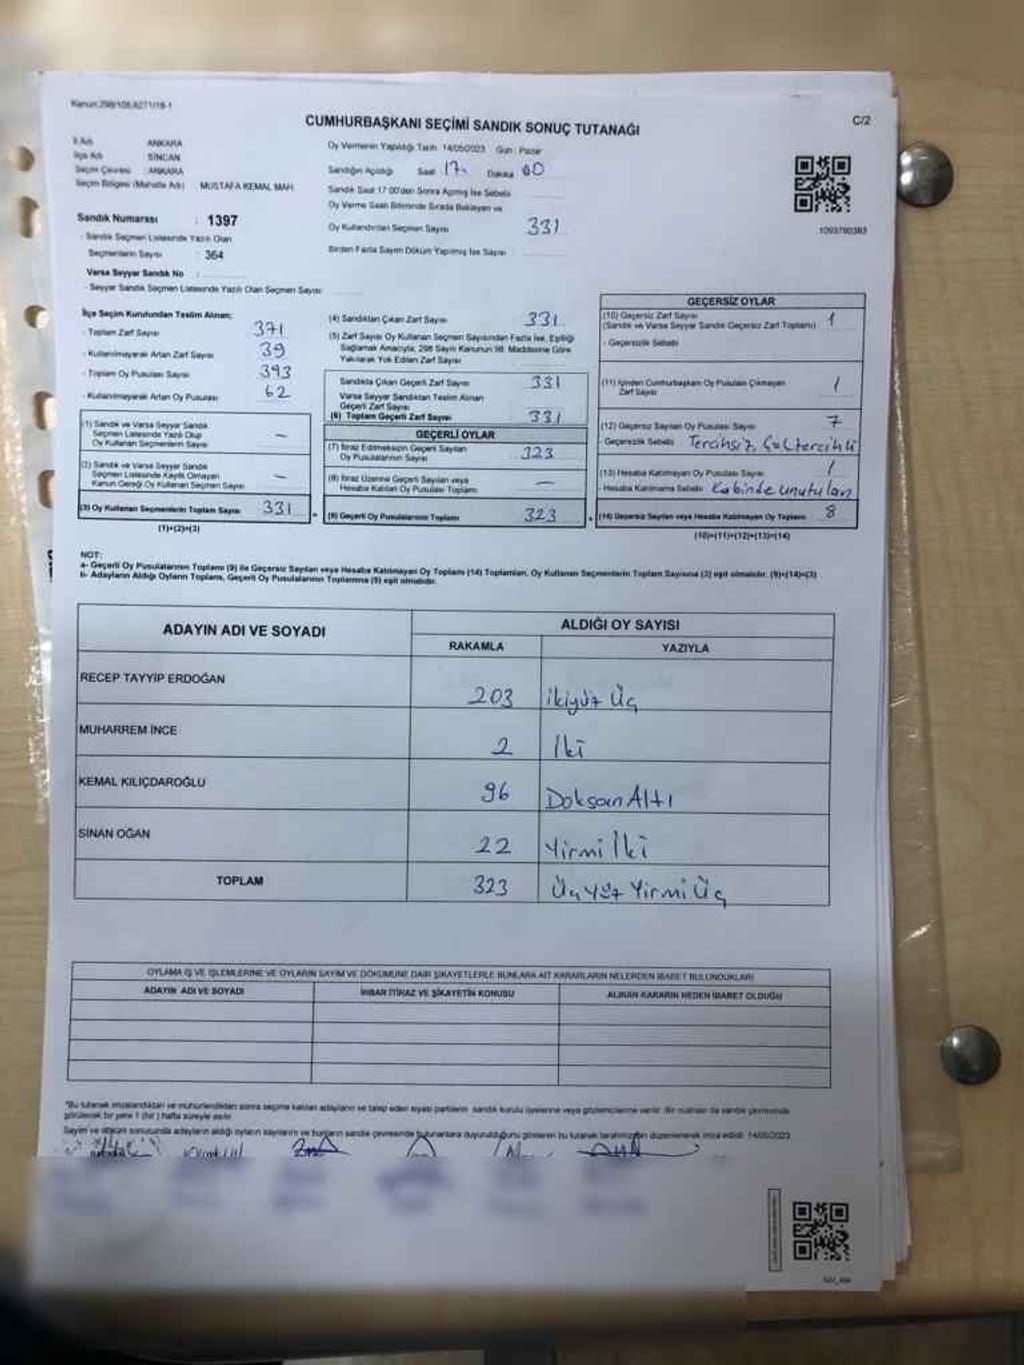 Kanun:298/105,6271/18-1
CUMHURBAŞKANI SEÇİMİ SANDIK SONUÇ TUTANAĞI
C/2
İl Adı ANKARA
İlçe Adı SİNCAN
Seçim Çevresi : ANKARA
Seçim Bölgesi (Mahalle Adı) MUSTAFA KEMAL MAH.
Sandık Numarası : 1397
- Sandık Seçmen Listesinde Yazılı Olan
Seçmenlerin Sayısı : 364
Varsa Seyyar Sandık No :
- Seyyar Sandık Seçmen Listesinde Yazılı Olan Seçmen Sayısı
Oy Vermenin Yapıldığı Tarih 14/05/2023 Gün : Pazar
Sandığın Açıldığı Saat 17 Dakika 00
Sandık Saat 17.00'den Sonra Açılmış İse Sebebi
Oy Verme Saati Bitiminde Sırada Bekleyen ve
Oy Kullandırılan Seçmen Sayısı 331
Birden Fazla Sayım Döküm Yapılmış İse Sayısı
1093790393
İlçe Seçim Kurulundan Teslim Alınan;
- Toplam Zarf Sayısı 371
- Kullanılmayarak Artan Zarf Sayısı 39
- Toplam Oy Pusulası Sayısı 393
- Kullanılmayarak Artan Oy Pusulası 62
(1) Sandık ve Varsa Seyyar Sandık
Seçmen Listesinde Yazılı Olup
Oy Kullanan Seçmenlerin Sayısı –
(2) Sandık ve Varsa Seyyar Sandık
Seçmen Listesinde Kaydı Olmayan
Kanun Gereği Oy Kullanan Seçmen Sayısı –
(3) Oy Kullanan Seçmenlerin Toplam Sayısı 331
(1)+(2)=(3)
(4) Sandıktan Çıkan Zarf Sayısı 331
(5) Zarf Sayısı Oy Kullanan Seçmen Sayısından Fazla İse, Eşitliği
Sağlamak Amacıyla, 298 Sayılı Kanunun 98. Maddesine Göre
Yakılarak Yok Edilen Zarf Sayısı
Sandıkta Çıkan Geçerli Zarf Sayısı 331
Varsa Seyyar Sandıktan Teslim Alınan
Geçerli Zarf Sayısı
(6) Toplam Geçerli Zarf Sayısı 331
GEÇERLİ OYLAR
(7) İtiraz Edilmeksizin Geçerli Sayılan
Oy Pusulalarının Sayısı 323
(8) İtiraz Üzerine Geçerli Sayılan veya
Hesaba Katılan Oy Pusulası Toplamı –
(9) Geçerli Oy Pusulalarının Toplamı 323
GEÇERSİZ OYLAR
(10) Geçersiz Zarf Sayısı
(Sandık ve Varsa Seyyar Sandık Geçersiz Zarf Toplamı) 1
- Geçersizlik Sebebi
(11) İçinden Cumhurbaşkanı Oy Pusulası Çıkmayan
Zarf Sayısı
(12) Geçersiz Sayılan Oy Pusulası Sayısı 7
- Geçersizlik Sebebi Tercihsiz, Çok tercihli
(13) Hesaba Katılmayan Oy Pusulası Sayısı
- Hesaba Katılmama Sebebi Kabinde unutulan
(14) Geçersiz Sayılan veya Hesaba Katılmayan Oy Toplamı 8
(10)+(11)+(12)+(13)=(14)
NOT:
a- Geçerli Oy Pusulalarının Toplamı (9) ile Geçersiz Sayılan veya Hesaba Katılmayan Oy Toplamı (14) Toplamları, Oy Kullanan Seçmenlerin Toplam Sayısına (3) eşit olmalıdır. (9)+(14)=(3)
b- Adayların Aldığı Oyların Toplamı, Geçerli Oy Pusulalarının Toplamına (9) eşit olmalıdır.
ADAYIN ADI VE SOYADI
ALDIĞI OY SAYISI
RAKAMLA YAZIYLA
RECEP TAYYİP ERDOĞAN 203 ikiyüz Üç
MUHARREM İNCE 2 İki
KEMAL KILIÇDAROĞLU 96 Doksan Altı
SİNAN OĞAN 22 Yirmi İki
TOPLAM 323 Üç Yüz Yirmi Üç
OYLAMA İŞ VE İŞLEMLERİNE VE OYLARIN SAYIM VE DÖKÜMÜNE DAİR ŞİKAYETLERLE BUNLARA AİT KARARLARIN NELERDEN İBARET BULUNDUKLARI
ADAYIN ADI VE SOYADI
İHBAR İTİRAZ VE ŞİKAYETİN KONUSU
ALINAN KARARIN NEDEN İBARET OLDUĞU
*Bu tutanak imzalandıktan ve mühürlendikten sonra seçime katılan adayların ve talep eden siyasi partilerin sandık kurulu üyelerine veya gözlemcilerine verilir. Bir nüshası da sandık çevresinde
görülecek bir yere 1 (bir) hafta süreyle asılır.
Sayım ve döküm sonucunda adayların aldığı oyların sayılarını ve bunların sandık çevresinde bulunanlara duyurulduğunu gösteren bu tutanak tarafımızdan düzenlenerek imza edildi. 14/05/2023